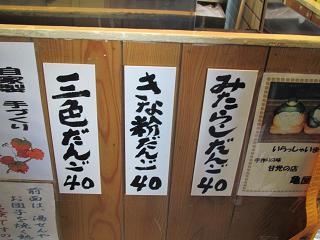 自家製 手づくり
三色だんご 40
きな粉だんご 40
みたらしだんご 40
いらっしゃいま
手作りの味
甘党の店
亀屋
前面は、湯せん
お団子を焼く熱